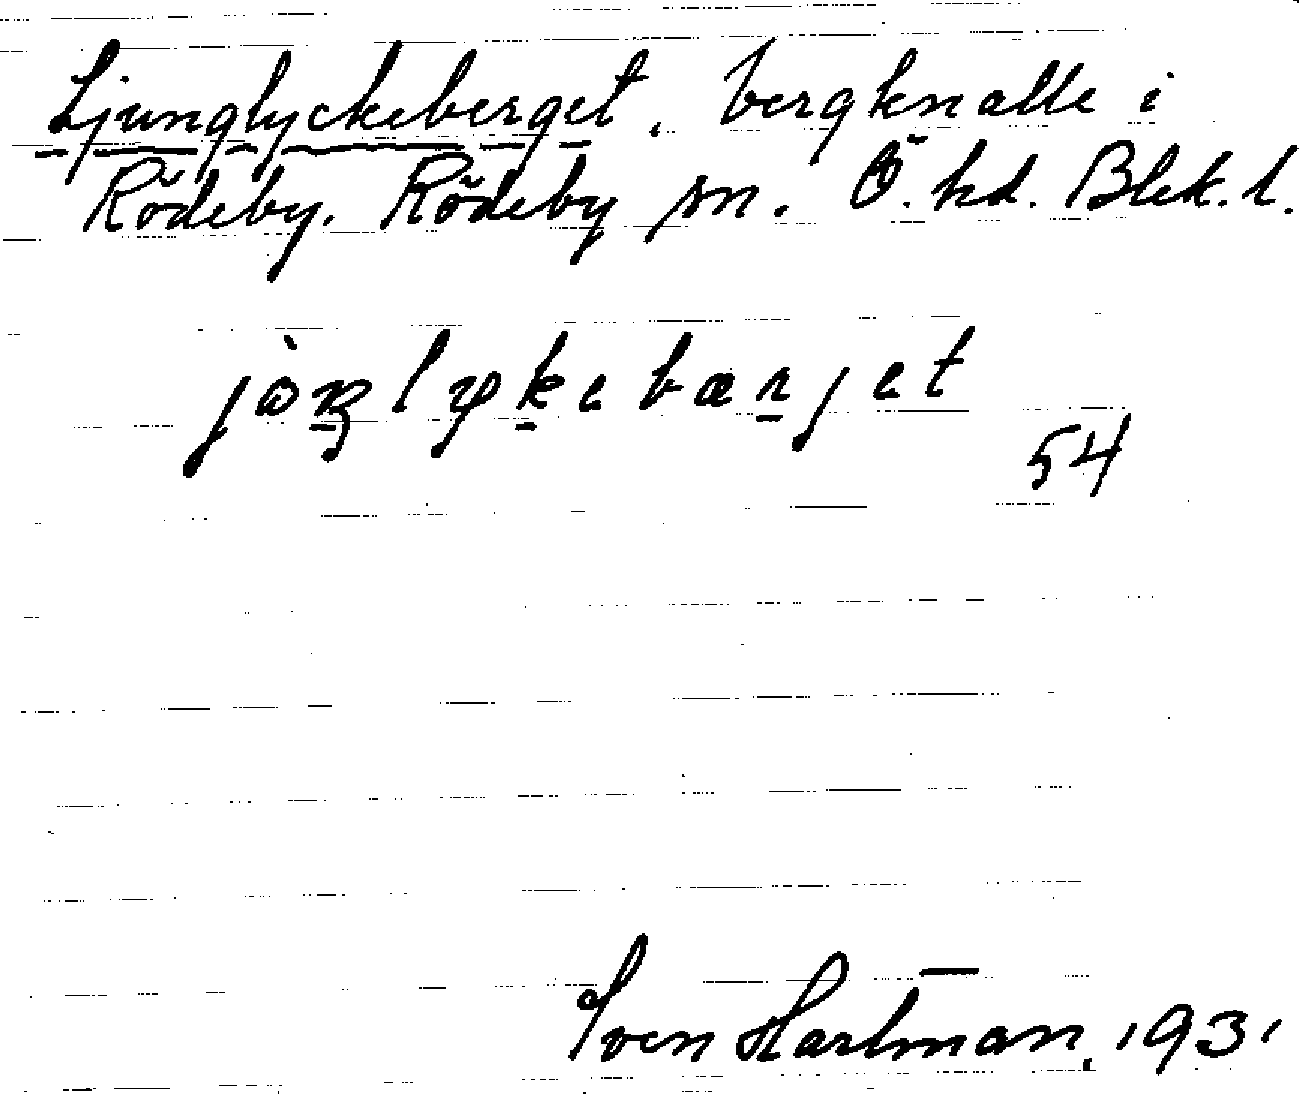 Ljunglyckeberget, bergknalle i
Rödeby. Rödeby sn. Ö. hd. Blek. l.
54
Sven Hartman, 1931